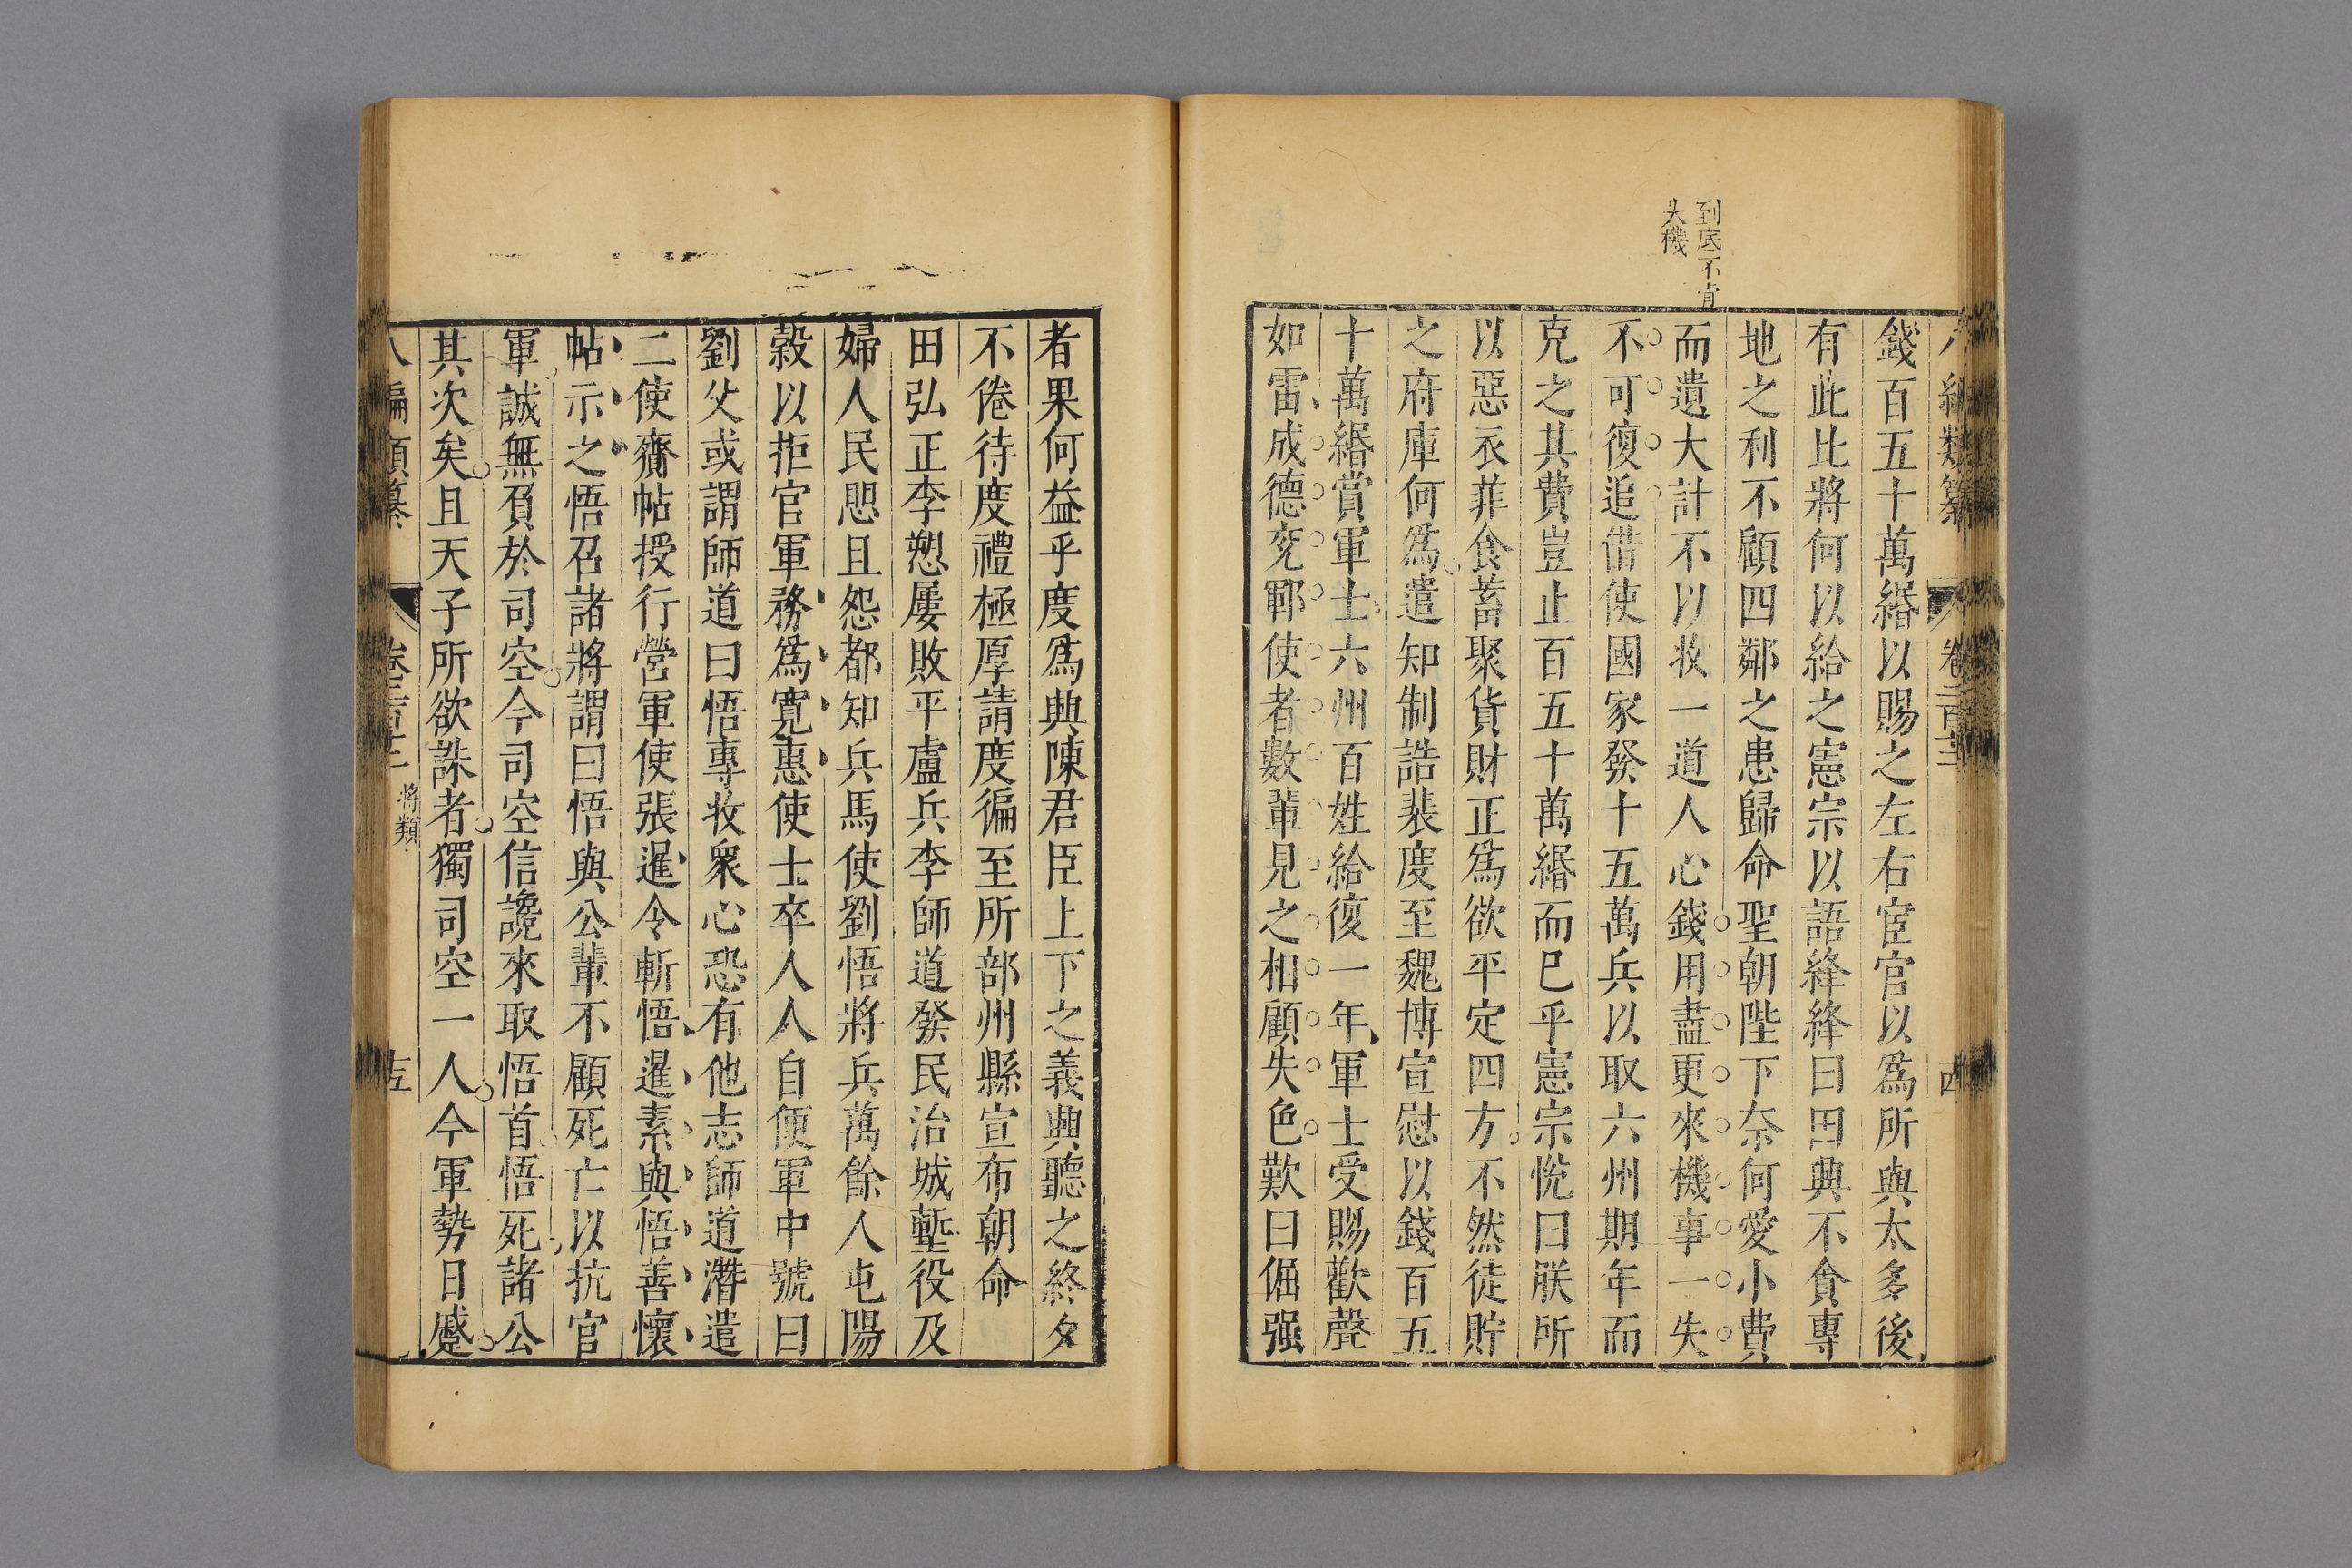 到底不肯
失機
八編類纂 卷二百三 十四
錢百五十萬緡以賜之左右宦官以爲所與太多後
有此比將何以給之憲宗以語絳絳曰田興不貪專
地之利不顧四鄰之患歸命聖朝陛下奈何愛小費
而遺大計不以收一道人心錢用盡更來機事一失
不可復追借使國家發十五萬兵以取六州期年而
克之其費豈止百五十萬緡而已乎憲宗悅曰朕所
以惡衣菲食蓄聚貨財正爲欲平定四方不然徒貯
之府庫何爲遣知制誥裴度至魏博宣慰以錢百五
十萬緡賞軍士六州百姓給復一年軍士受賜歡聲
如雷成德兗鄆使者數輩見之相顧失色歎曰倔强
者果何益乎度爲興陳君臣上下之義興聽之終夕
不倦待度禮極厚請度徧至所部州縣宣布朝命
田弘正李愬屢敗平盧兵李師道發民治城塹役及
婦人民愳且怨都知兵馬使劉悟將兵萬餘人屯陽
穀以拒官軍務爲寬惠使士卒人人自便軍中號曰
劉父或謂師道曰悟專收衆心恐有他志師道潛遣
二使齎帖授行營軍使張暹令斬悟暹素與悟善懷
帖示之悟召諸將謂曰悟與公輩不顧死亡以抗官
軍誠無負於司空今司空信讒來取悟首悟死諸公
其次矣且天子所欲誅者獨司空一人今軍勢日蹙
八編類纂 將類